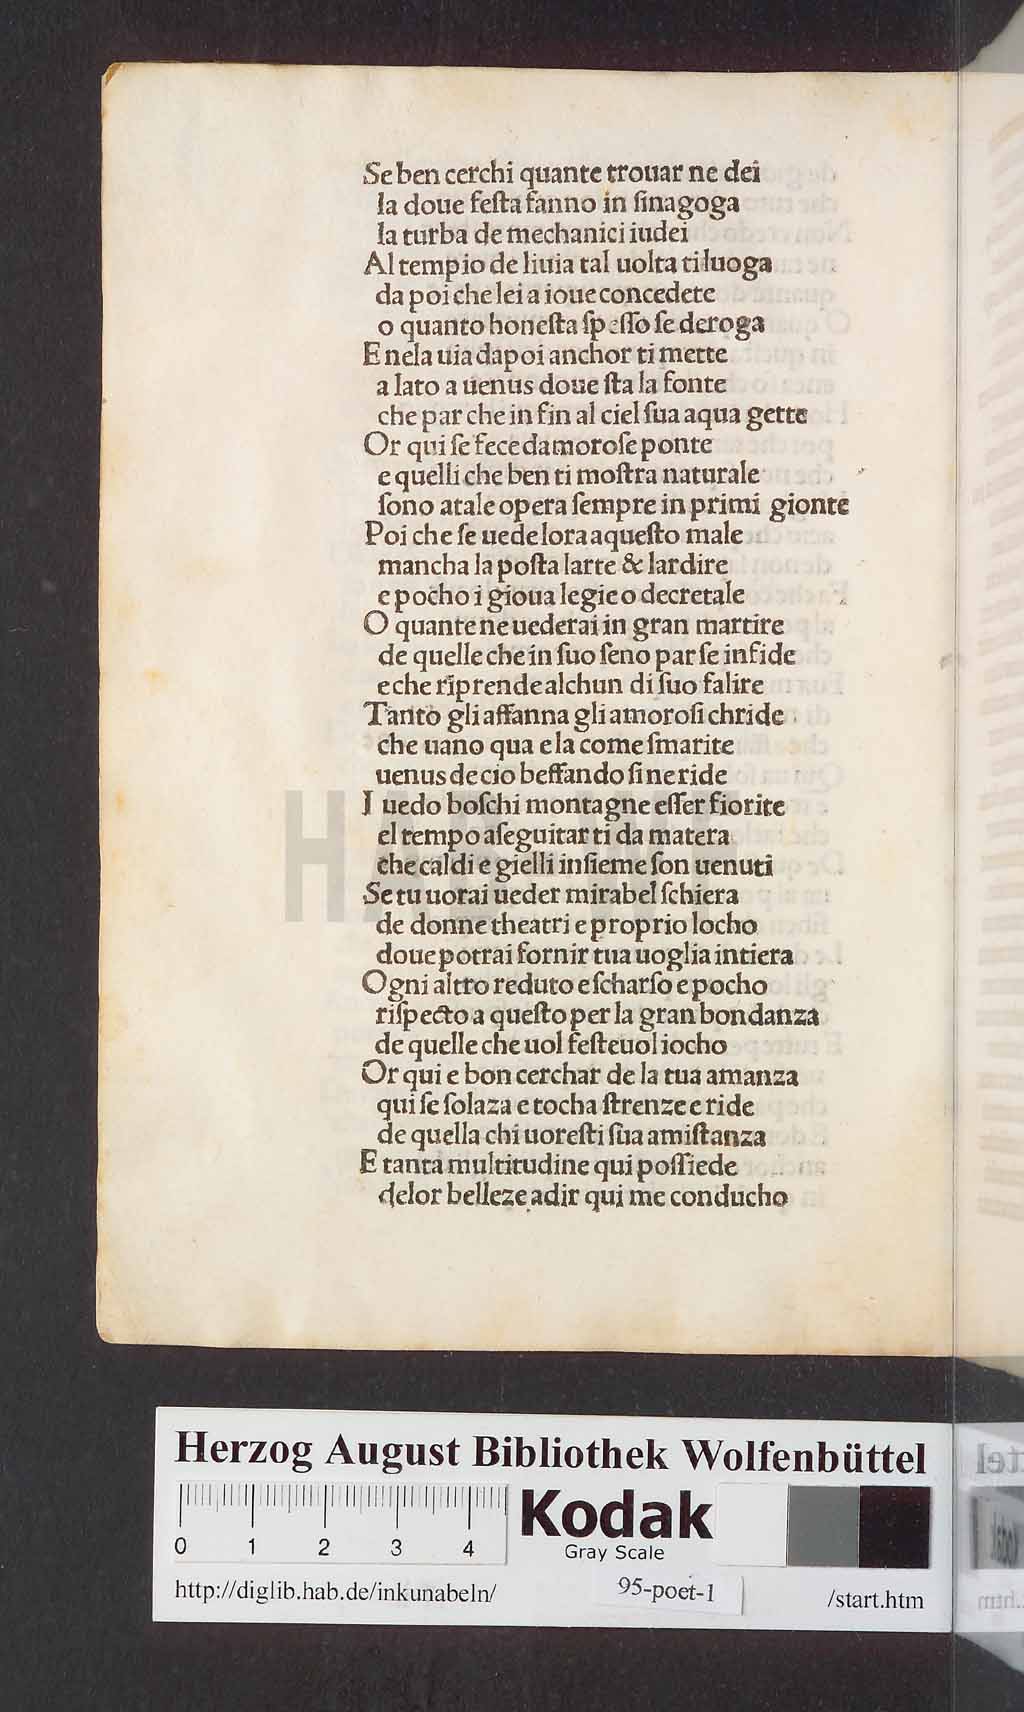 Se ben cerchi quante trouar ne dei
la doue feſta fanno in ſinagoga
la turba de mechanici iudei
Al tempio de liuia tal uolta ti luoga
da poi che lei a ioue concedete
o quanto honeſta ſpeſſo ſe deroga
E nela uia dapoi anchor ti mette
a lato a uenus doue ſta la fonte
che par che in fin al ciel ſua aqua gette
Or qui ſe fece damoroſe ponte
e quelli che ben ti moſtra naturale
ſono atale opera ſempre in primi gionte
Poi che ſe uede lora a queſto male
mancha la poſta larte & lardire
e pocho i gioua legie o decretale
O quante ne uederai in gran martire
de quelle che in ſuo ſeno par ſe infide
e che riprende alchun di ſuo falire
Tanto gli affanna gli amoroſi chride
che uano qua e la come ſmarite
uenus de cio beffando ſi ne ride
I uedo boſchi montagne eſſer fiorite
el tempo aſeguitar ti da matera
che caldi e gielli inſieme ſon uenuti
Se tu uorai ueder mirabel ſchiera
de donne theatri e proprio locho
doue potrai fornir tua uoglia intiera
Ogni altro reduto e ſcharſo e pocho
riſpecto a queſto per la gran bondanza
de quelle che uol feſteuol iocho
Or qui e bon cerchar de la tua amanza
qui ſe ſolaza e tocha ſtrenze e ride
de quella chi uoreſti ſua amiſtanza
E tanta multitudine qui poſſiede
delor belleze adir qui me conducho
HAB WF
Herzog August Bibliothek Wolfenbüttel
0 1 2 3 4
Kodak
Gray Scale
http://diglib.hab.de/inkunabeln/ 95-poet-1 /start.htm